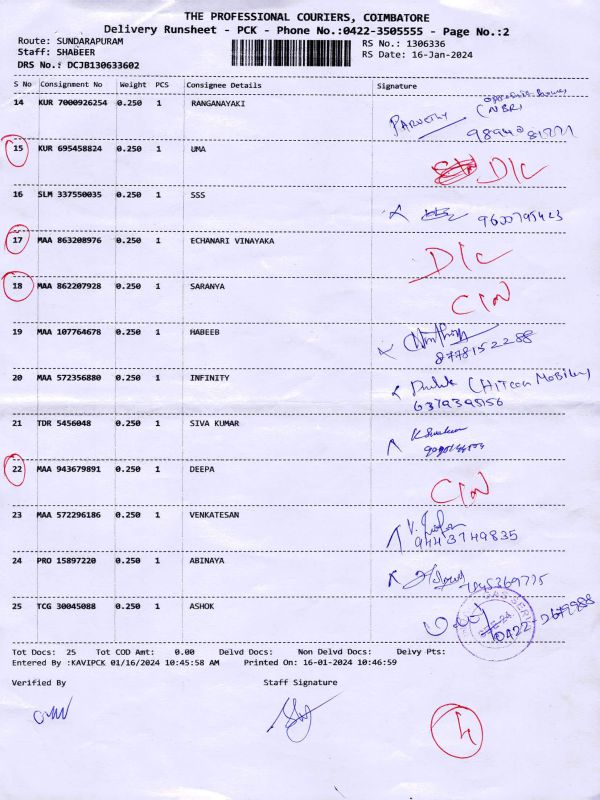 THE PROFESSIONAL COURIERS, COIMBATORE
Delivery Runsheet - PCK - Phone No.:0422-3505555 - Page No.:2
Route: SUNDARAPURAM RS No.: 1306336
Staff: SHABEER RS Date: 16-Jan-2024
DRS No.: DCJB130633602
S No Consignment No Weight PCS Consignee Details Signature
14 KUR 7000926254 0.250 1 RANGANAYAKI PARVATHY (NBR)
15 KUR 695458824 0.250 1 UMA D/C
16 SLM 337550035 0.250 1 SSS
17 MAA 863208976 0.250 1 ECHANARI VINAYAKA D/C
18 MAA 862207928 0.250 1 SARANYA C/N
19 MAA 107764678 0.250 1 HABEEB 8778152288
20 MAA 572356880 0.250 1 INFINITY (HiTCon MoBiles)
6379395156
21 TDR 5456048 0.250 1 SIVA KUMAR
22 MAA 943679891 0.250 1 DEEPA C/N
23 MAA 572296186 0.250 1 VENKATESAN 9443749835
24 PRO 15897220 0.250 1 ABINAYA
25 TCG 30045088 0.250 1 ASHOK
Tot Docs: 25 Tot COD Amt: 0.00 Delvd Docs: Non Delvd Docs: Delvy Pts:
Entered By :KAVIPCK 01/16/2024 10:45:58 AM Printed On: 16-01-2024 10:46:59
Verified By Staff Signature